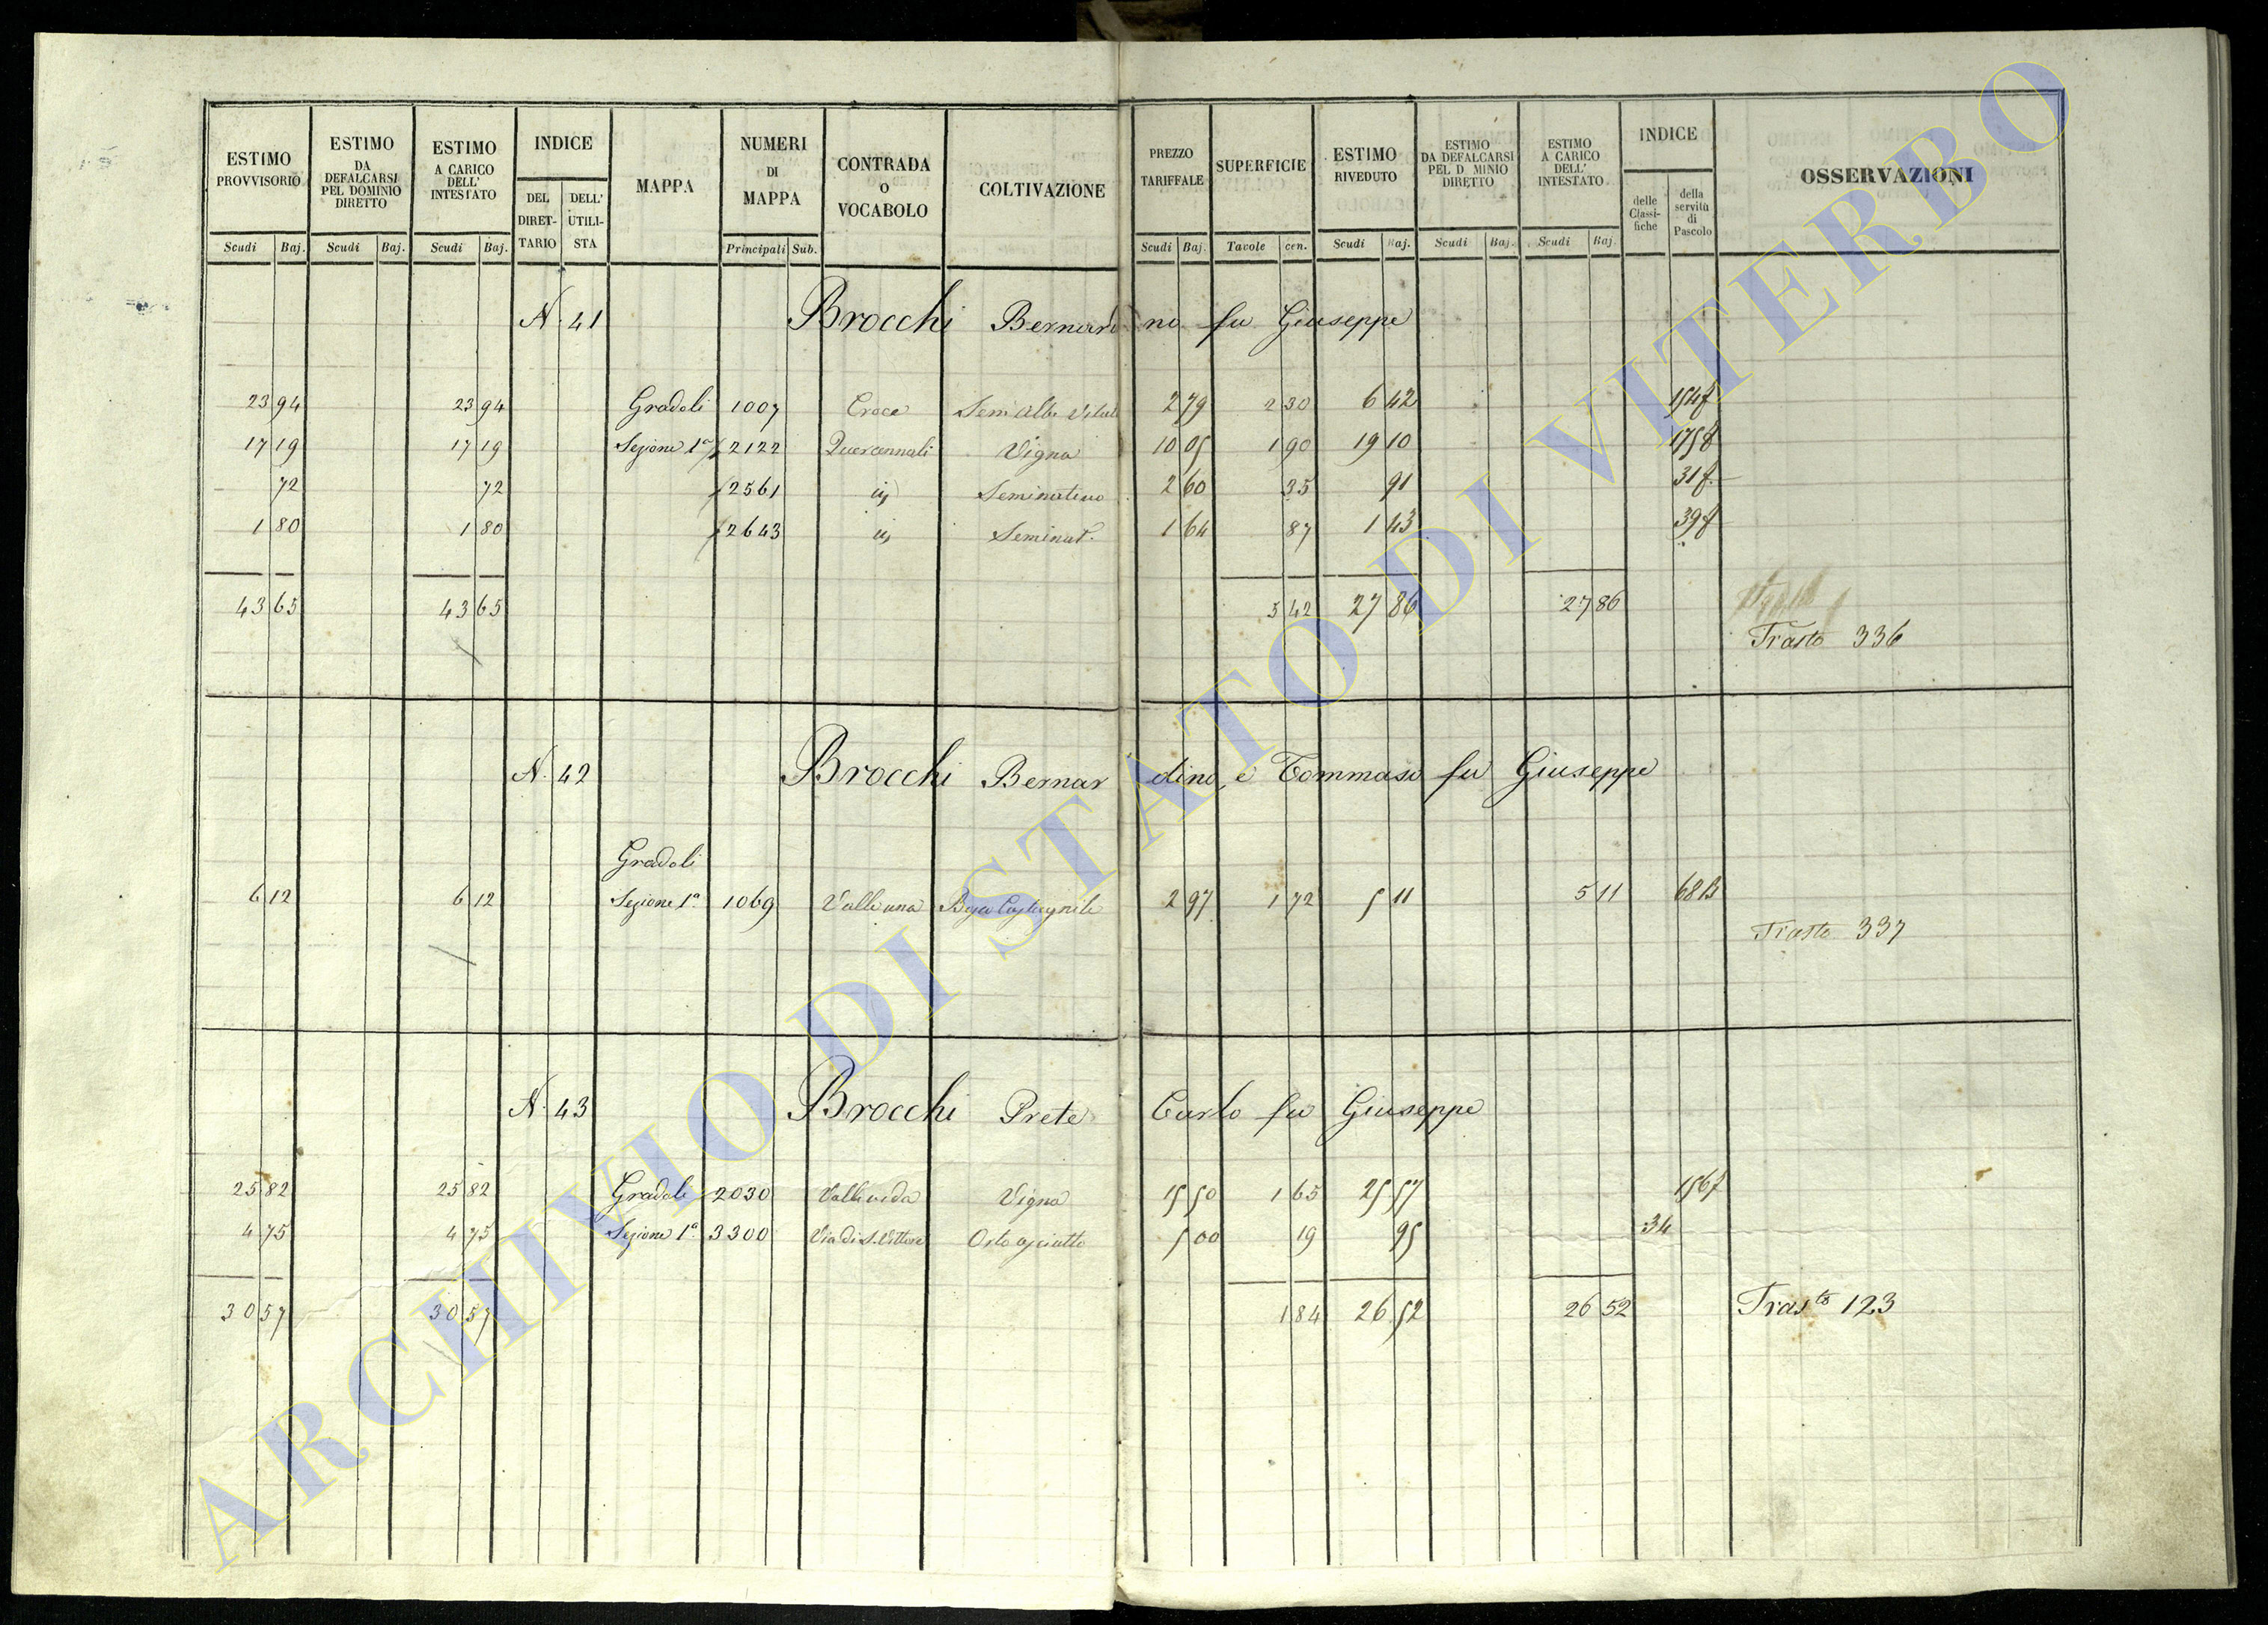 ESTIMO PROVVISORIO
Scudi Baj.
ESTIMO DA DEFALCARSI PEL DOMINIO DIRETTO
Scudi Baj.
ESTIMO A CARICO DELL' INTESTATO
Scudi Baj.
INDICE
DEL DIRET- TARIO
DELL' UTILI- STA
MAPPA
NUMERI DI MAPPA
Principali Sub.
CONTRADA O VOCABOLO
COLTIVAZIONE
PREZZO TARIFFALE
Scudi Baj.
SUPERFICIE
Tavole cen.
ESTIMO RIVEDUTO
Scudi Baj.
ESTIMO DA DEFALCARSI PEL D MINIO DIRETTO
Scudi Baj.
ESTIMO A CARICO DELL' INTESTATO
Scudi Baj.
INDICE
delle Classi- fiche
della servitù di Pascolo
OSSERVAZIONI
N. 41 Brocchi Bernardi no fu Giuseppe
23 94 23 94 Gradoli 1007 Croce 2 79 2 30 6 42
17 19 17 19 Sezione 1a 2122 Quercennali Vigna 10 05 1 90 19 10
72 72 2561 Seminativo 2 60 35 91
1 80 1 80 2643 Seminat. 1 64 87 1 43
43 65 43 65 5 42 27 86 27 86
Trasto 336
N. 42 Brocchi Bernar dino, e Tommaso fu Giuseppe
Gradoli
6 12 6 12 Sezione 1a 1069 2 97 1 72 5 11 5 11
Trasto 337
N. 43 Brocchi Prete Carlo fu Giuseppe
25 82 25 82 Gradoli 2030 Vigna 15 50 1 65 25 57
4 75 4 75 Sezione 1a 3300 Via di S. Vittore Orto 5 00 19 95 34
30 57 30 57 1 84 26 52 26 52 Trasto 123
ARCHIVIO DI STATO DI VITERBO